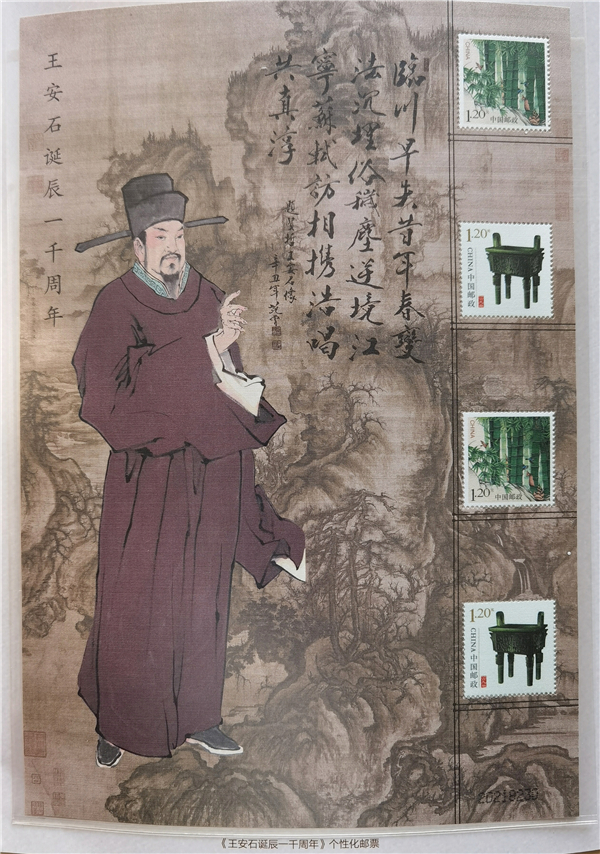 王安石诞辰一千周年
臨川早失昔年春變
法沉埋俗穢塵逆境江
寧蘇軾訪相携浩唱
共真淳
CHINA
1.20元
中国邮政
1.20元
CHINA 中国邮政
CHINA
1.20元
中国邮政
1.20元
CHINA 中国邮政
《王安石诞辰一千周年》个性化邮票